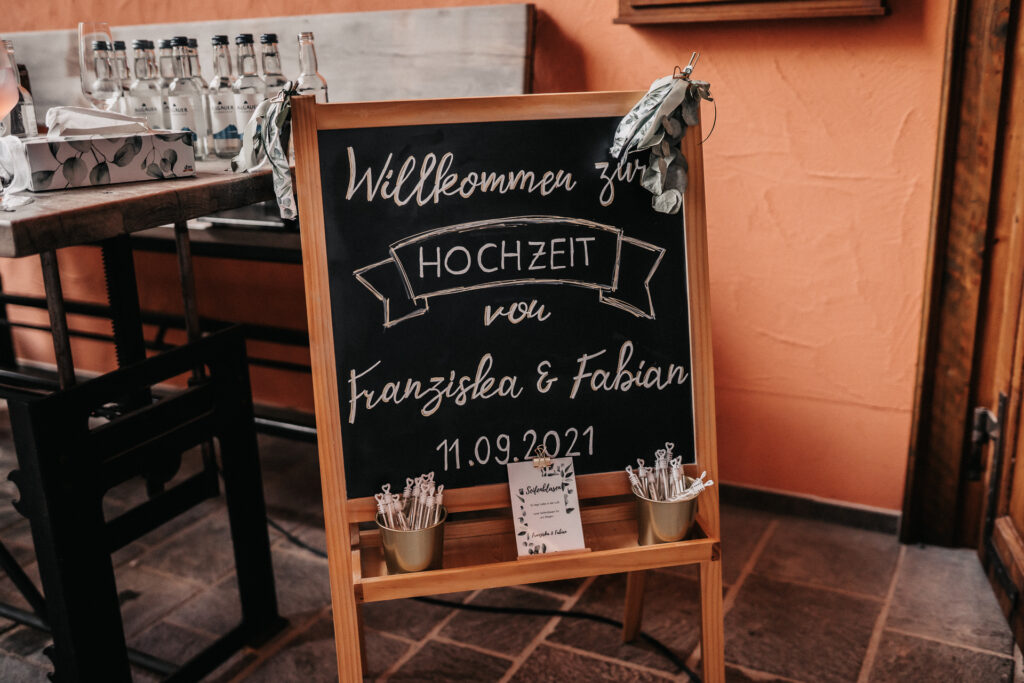 Willkommen zur
HOCHZEIT
von
Franziska & Fabian
11.09.2021
Seifenblasen
Franziska & Fabian